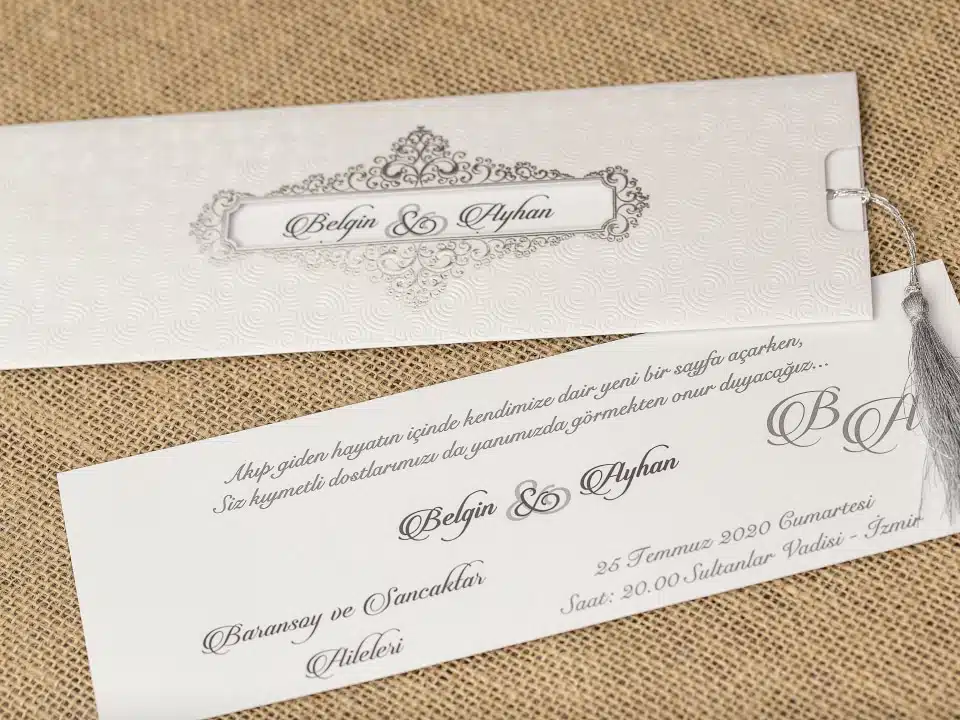 Belgin & Ayhan
Akıp giden hayatın içinde kendimize dair yeni bir sayfa açarken,
Siz kıymetli dostlarımızı da yanımızda görmekten onur duyacağız...
B A
Belgin & Ayhan
25 Temmuz 2020 Cumartesi
Saat: 20.00 Sultanlar Vadisi - İzmir
Baransoy ve Sancaktar
Aileleri